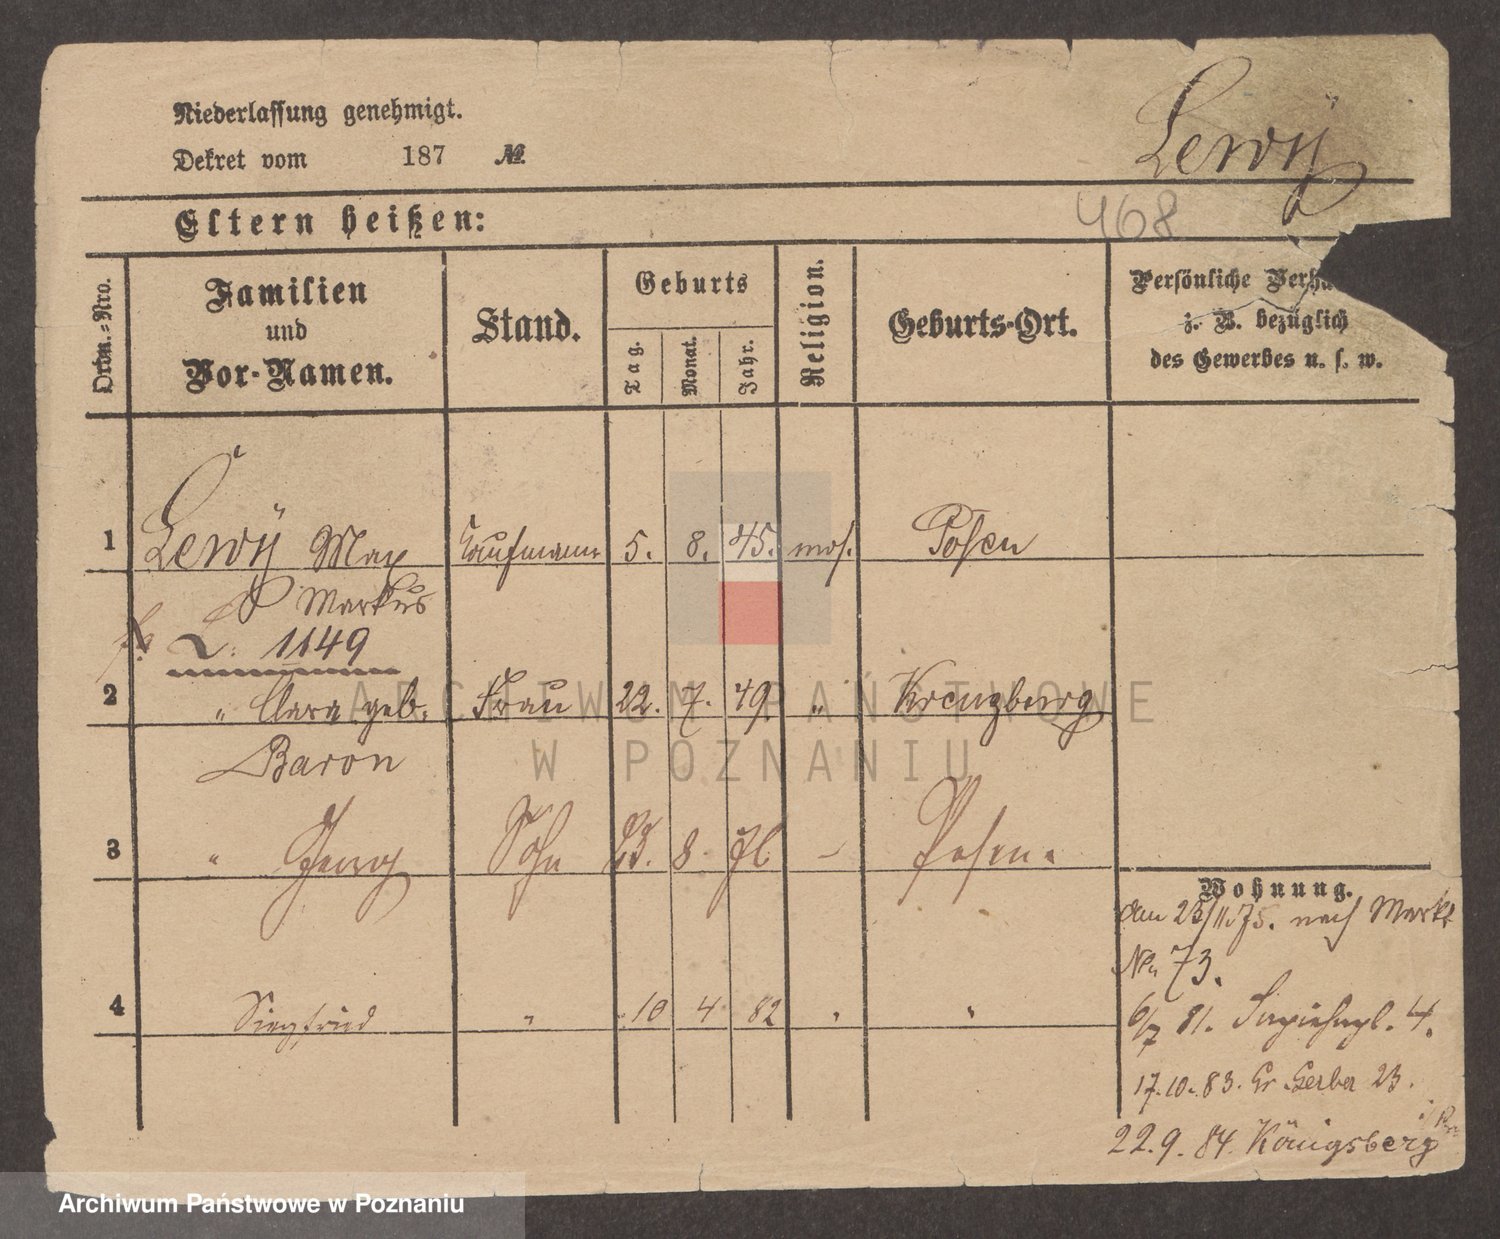 Niederlassung genehmigt.
Dekret vom 187 №
Lewÿ
Eltern heißen:
468
Ordn.=Nro.
Familien und Vor-Namen.
Stand.
Geburts
Tag.
Monat.
Jahr.
Religion.
Geburts-Ort.
Persönliche
z. B. bezüglich
des Gewerbes u. s. w.
1 Lewÿ Max Kaufmann 5. 8. 45. mos. Posen
Markus
L. 1149
2 " Clara geb. Frau 22. 7. 49. " Kreuzburg
Baron
3 " Georg Sohn 8. Posen
4 Siegfried " 10 4 82 " "
Wohnung.
den 23/11.75. nach Markt
No 73.
6/7 81. Sapiehapl. 4.
17.10.83. Gr. Gerber 23.
22.9.84. Königsberg
ARCHIWUM PAŃSTWOWE
W POZNANIU
Archiwum Państwowe w Poznaniu